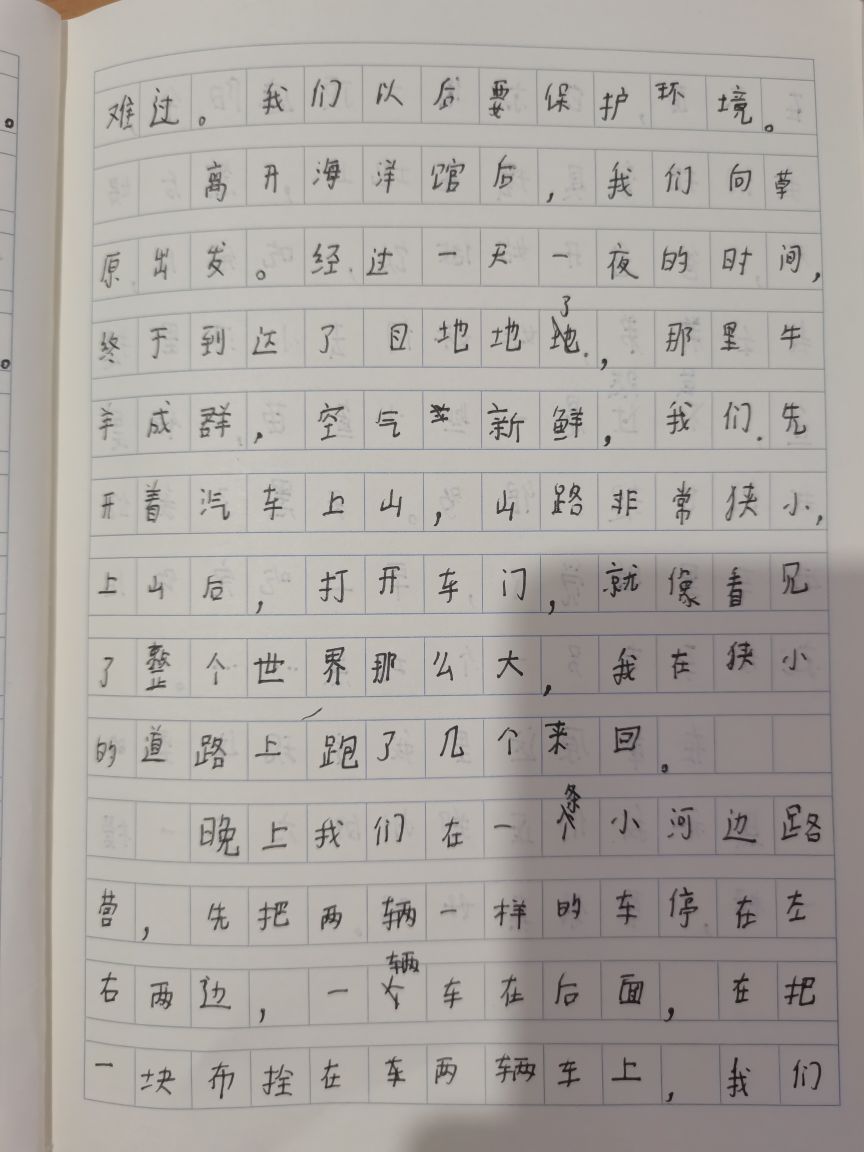 难过。我们以后要保护环境。
离开海洋馆后，我们向草
原出发。经过一天一夜的时间，
终于到达了目地地了，那里牛
羊成群，空气新鲜，我们先
开着汽车上山，山路非常狭小，
上山后，打开车门，就像看见
了整个世界那么大，我在狭小
的道路上跑了几个来回。
晚上我们在一条小河边路
营，先把两辆一样的车停在左
右两边，一辆车在后面，在把
一块布拴在车两辆车上，我们